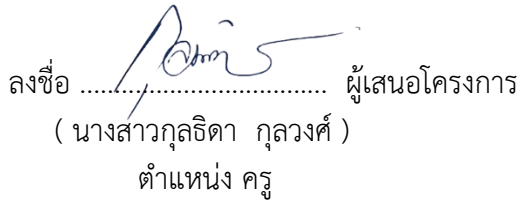 ลงชื่อ .................................... ผู้เสนอโครงการ
( นางสาวกุลธิดา กุลวงศ์ )
ตำแหน่ง ครู